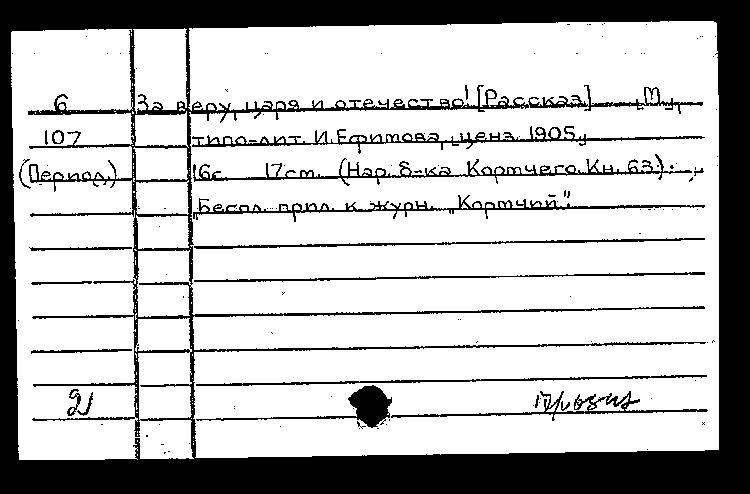 6 За веру, царя и отечество! [Рассказ] М.,
107 типо-лит. И. Ефимова, ценз. 1905.
(Период.) 16с. 17см. (Нар. б-ка Кормчего. Кн. 63).
Беспл. прил. к журн. „Кормчий"
21